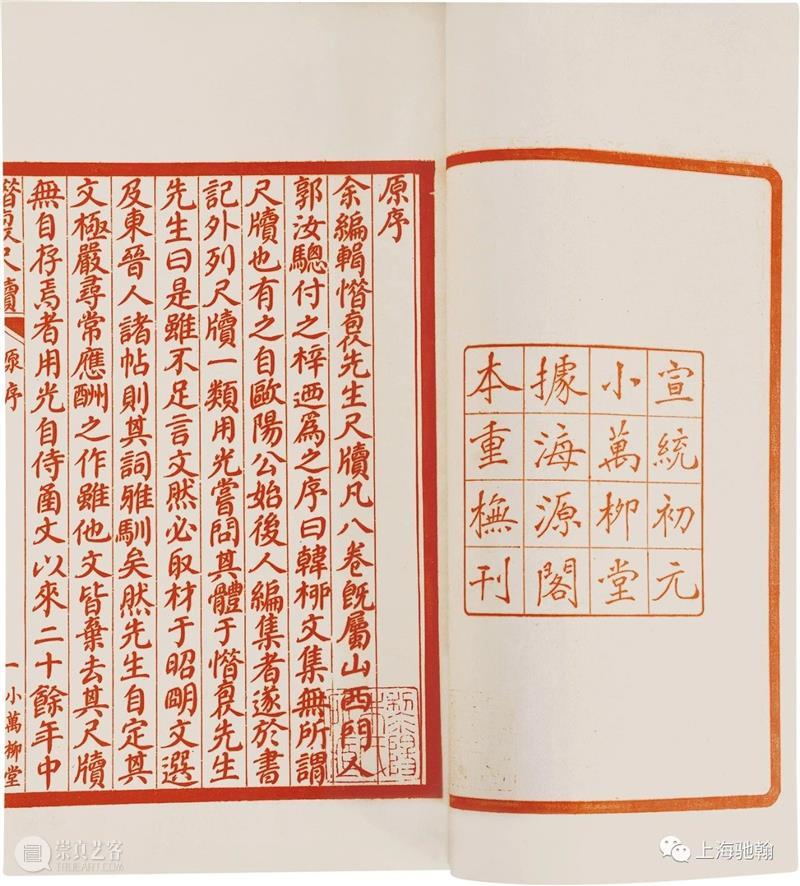 宣統初元
小萬柳堂
據海源閣
本重橅刊
原序
余編輯惜裒先生尺牘凡八卷旣屬山西門人
郭汝驄付之梓迺爲之序曰韓栁文集無所謂
尺牘也有之自歐陽公始後人編集者遂於書
記外列尺牘一類用光嘗問其體于惜裒先生
先生曰是雖不足言文然必取材于昭明文選
及東晉人諸帖則其詞雅馴矣然先生自定其
文極嚴尋常應酬之作雖他文皆棄去其尺牘
無自存焉者用光自侍函文以來二十餘年中
惜裒尺牘 原序 一 小萬柳堂
崇真艺客
TRUEART.COM
上海驰翰